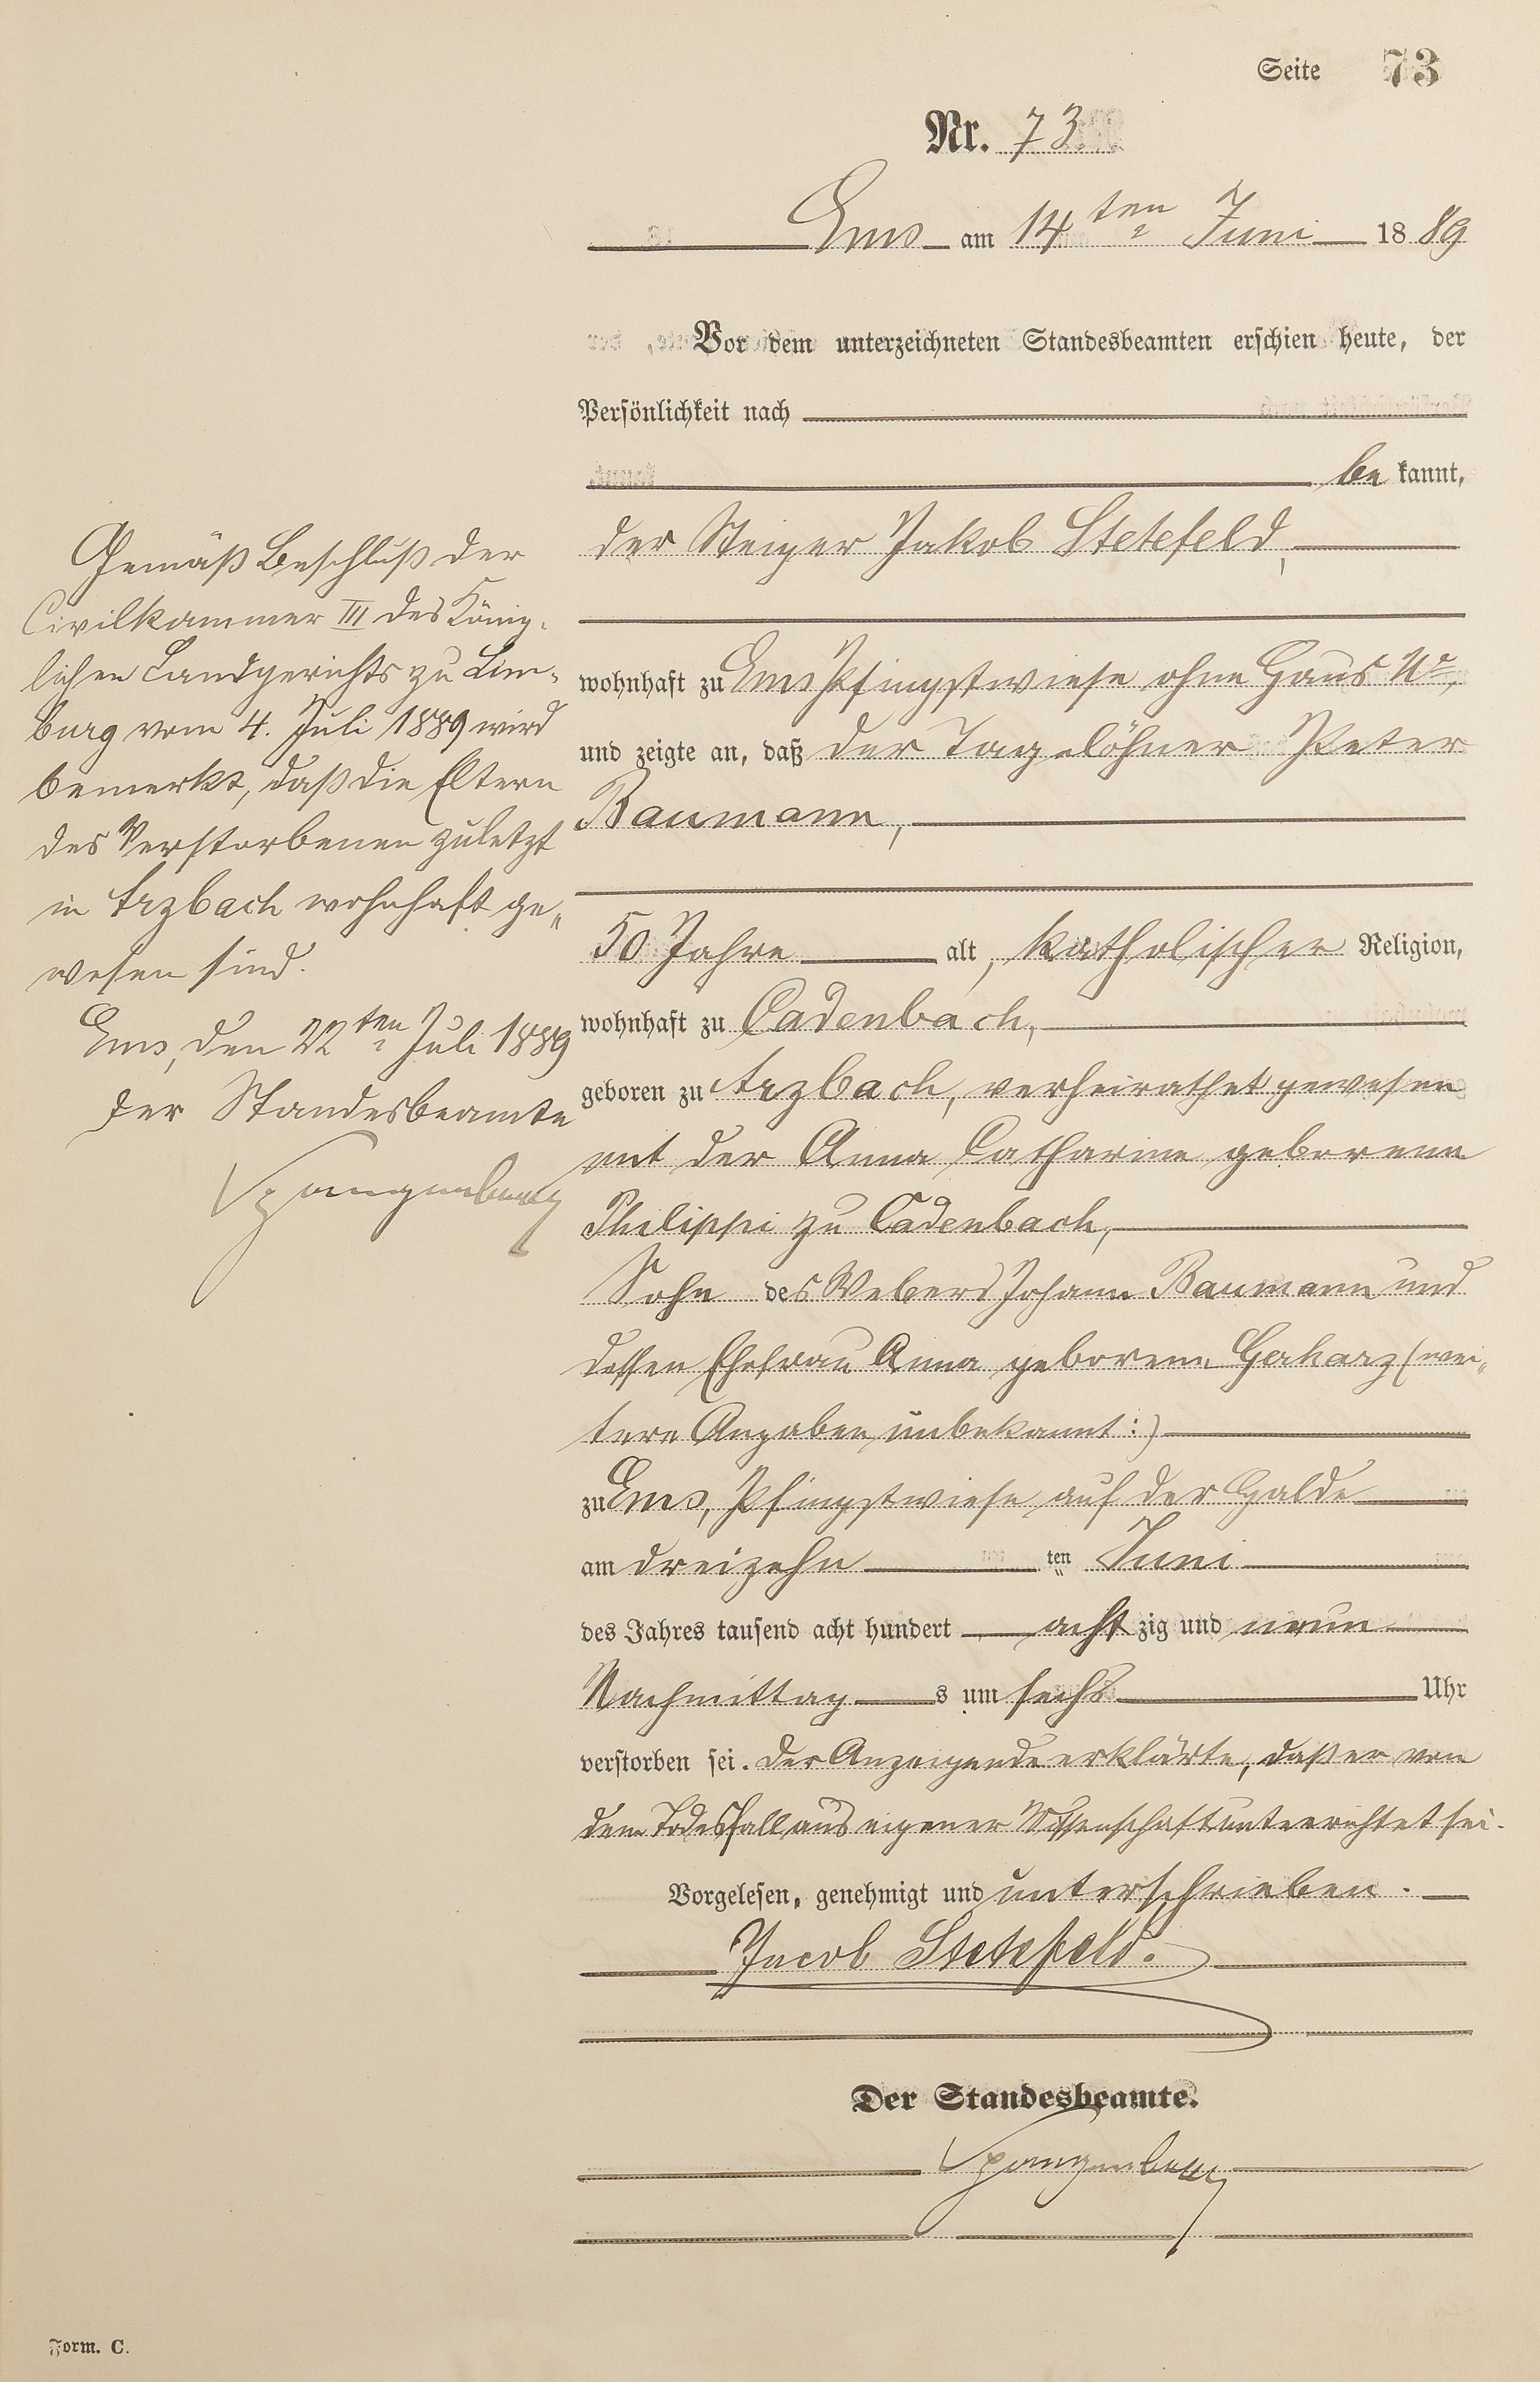 Seite 73
Nr. 73
Ems am 14ten Juni 1889
Vor dem unterzeichneten Standesbeamten erschien heute, der
Persönlichkeit nach
be kannt,
der Steiger Jakob Stetefeld,
wohnhaft zu Ems Pfingstwiese ohne Haus No,
und zeigte an, daß der Tagelöhner Peter
Baumann,
50 Jahre alt, katholischer Religion,
wohnhaft zu Cadenbach,
geboren zu Arzbach, verheirathet gewesen
mit der Anna Catharine geborene
Philippi zu Cadenbach,
Sohn des Webers Johann Baumann und
dessen Ehefrau Anna geborene Gerharz (wei„
tere Angaben unbekannt:)
zu Ems, Pfingstwiese auf der Halde
am dreizehn ten Juni
des Jahres tausend acht hundert acht zig und neun
Nachmittag s um sechs Uhr
verstorben sei. Der Anzeigende erklärte, daß er von
dem Todesfall aus eigener Wissenschaft unterrichtet sei.
Vorgelesen, genehmigt und unterschrieben.
Jacob Stetefeld.
Der Standesbeamte.
Spangenberg
Gemäß Beschluß der
Civilkammer III des König-
lichen Landgerichts zu Lim-
burg vom 4. Juli 1889 wird
bemerkt, daß die Eltern
des Verstorbenen zuletzt
in Arzbach wohnhaft ge„
wesen sind.
Ems, den 22ten Juli 1889
Der Standesbeamte
Spangenberg
Form. C.